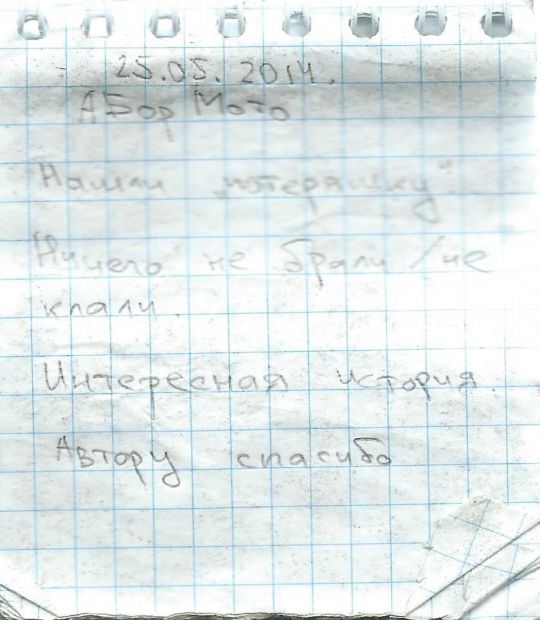 25.05.2014.
АБор Мото
Нашли "потеряшку"
Ничего не брали / не
клали.
Интересная история.
Автору спасибо